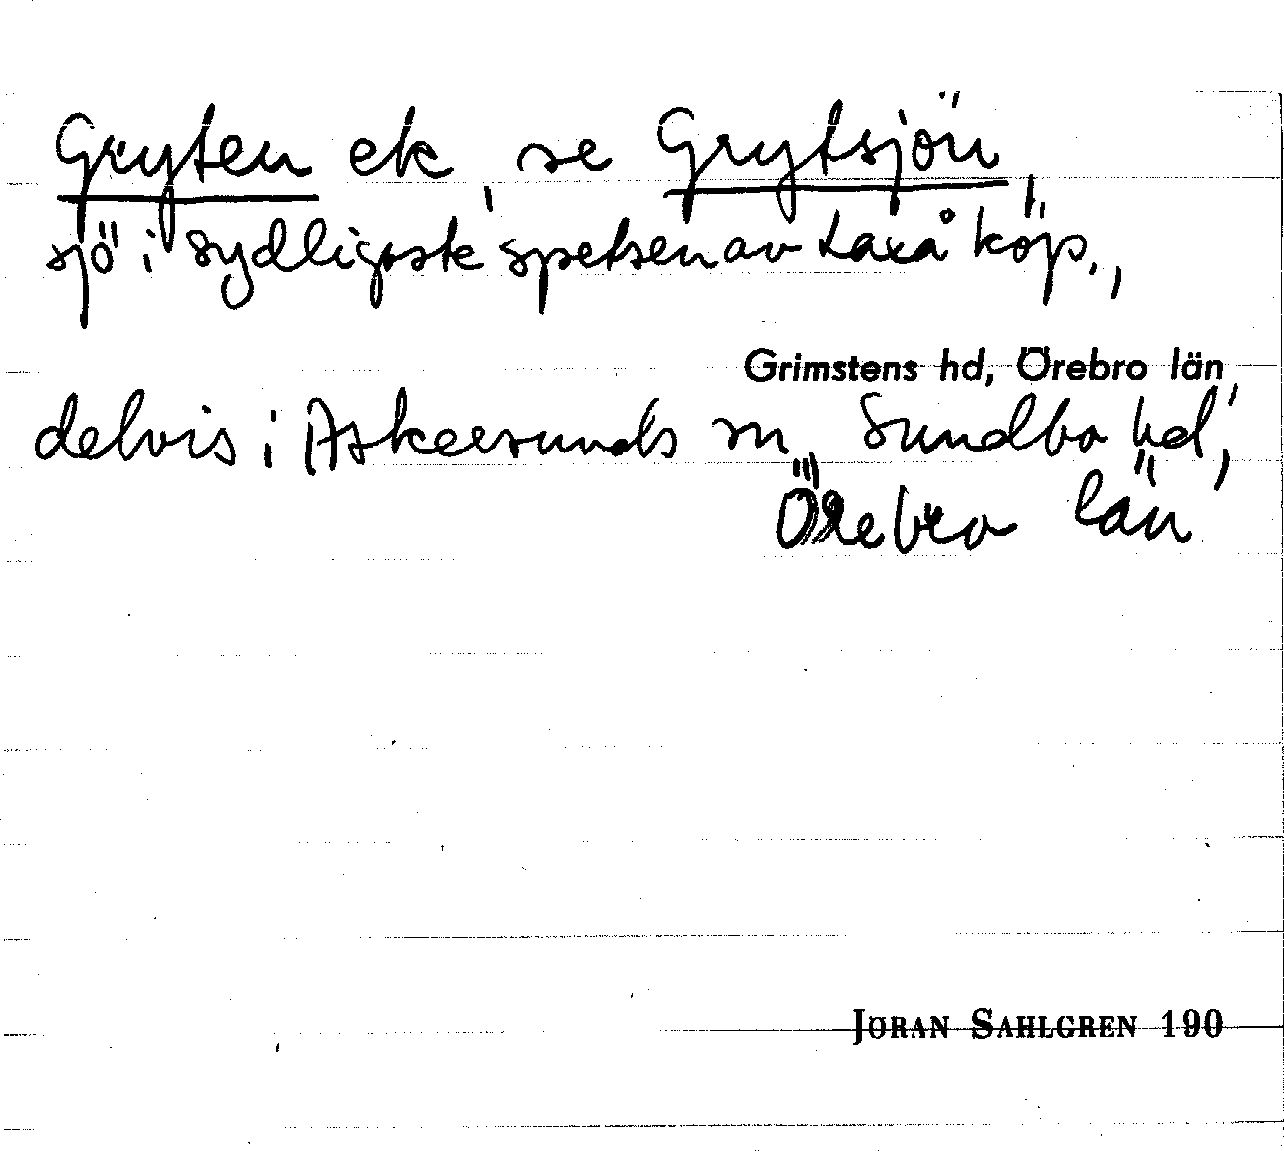 Gryten ek, se Grytsjön,
sjö i sydligaste spetsen av Laxå köp.,
Grimstens hd, Örebro län,
delvis i Askersunds sn, Sundbo hd,
Örebro län
JÖRAN SAHLGREN 190